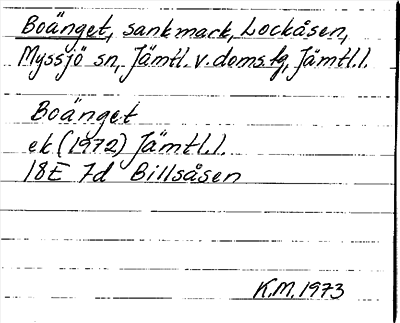 Boänget, sankmark, Lockåsen,
Myssjö sn, Jämtl. v. doms fg, Jämtl.l.
Boänget
ek (1972) Jämtl.l.
18E 7d Billsåsen
K.M. 1973